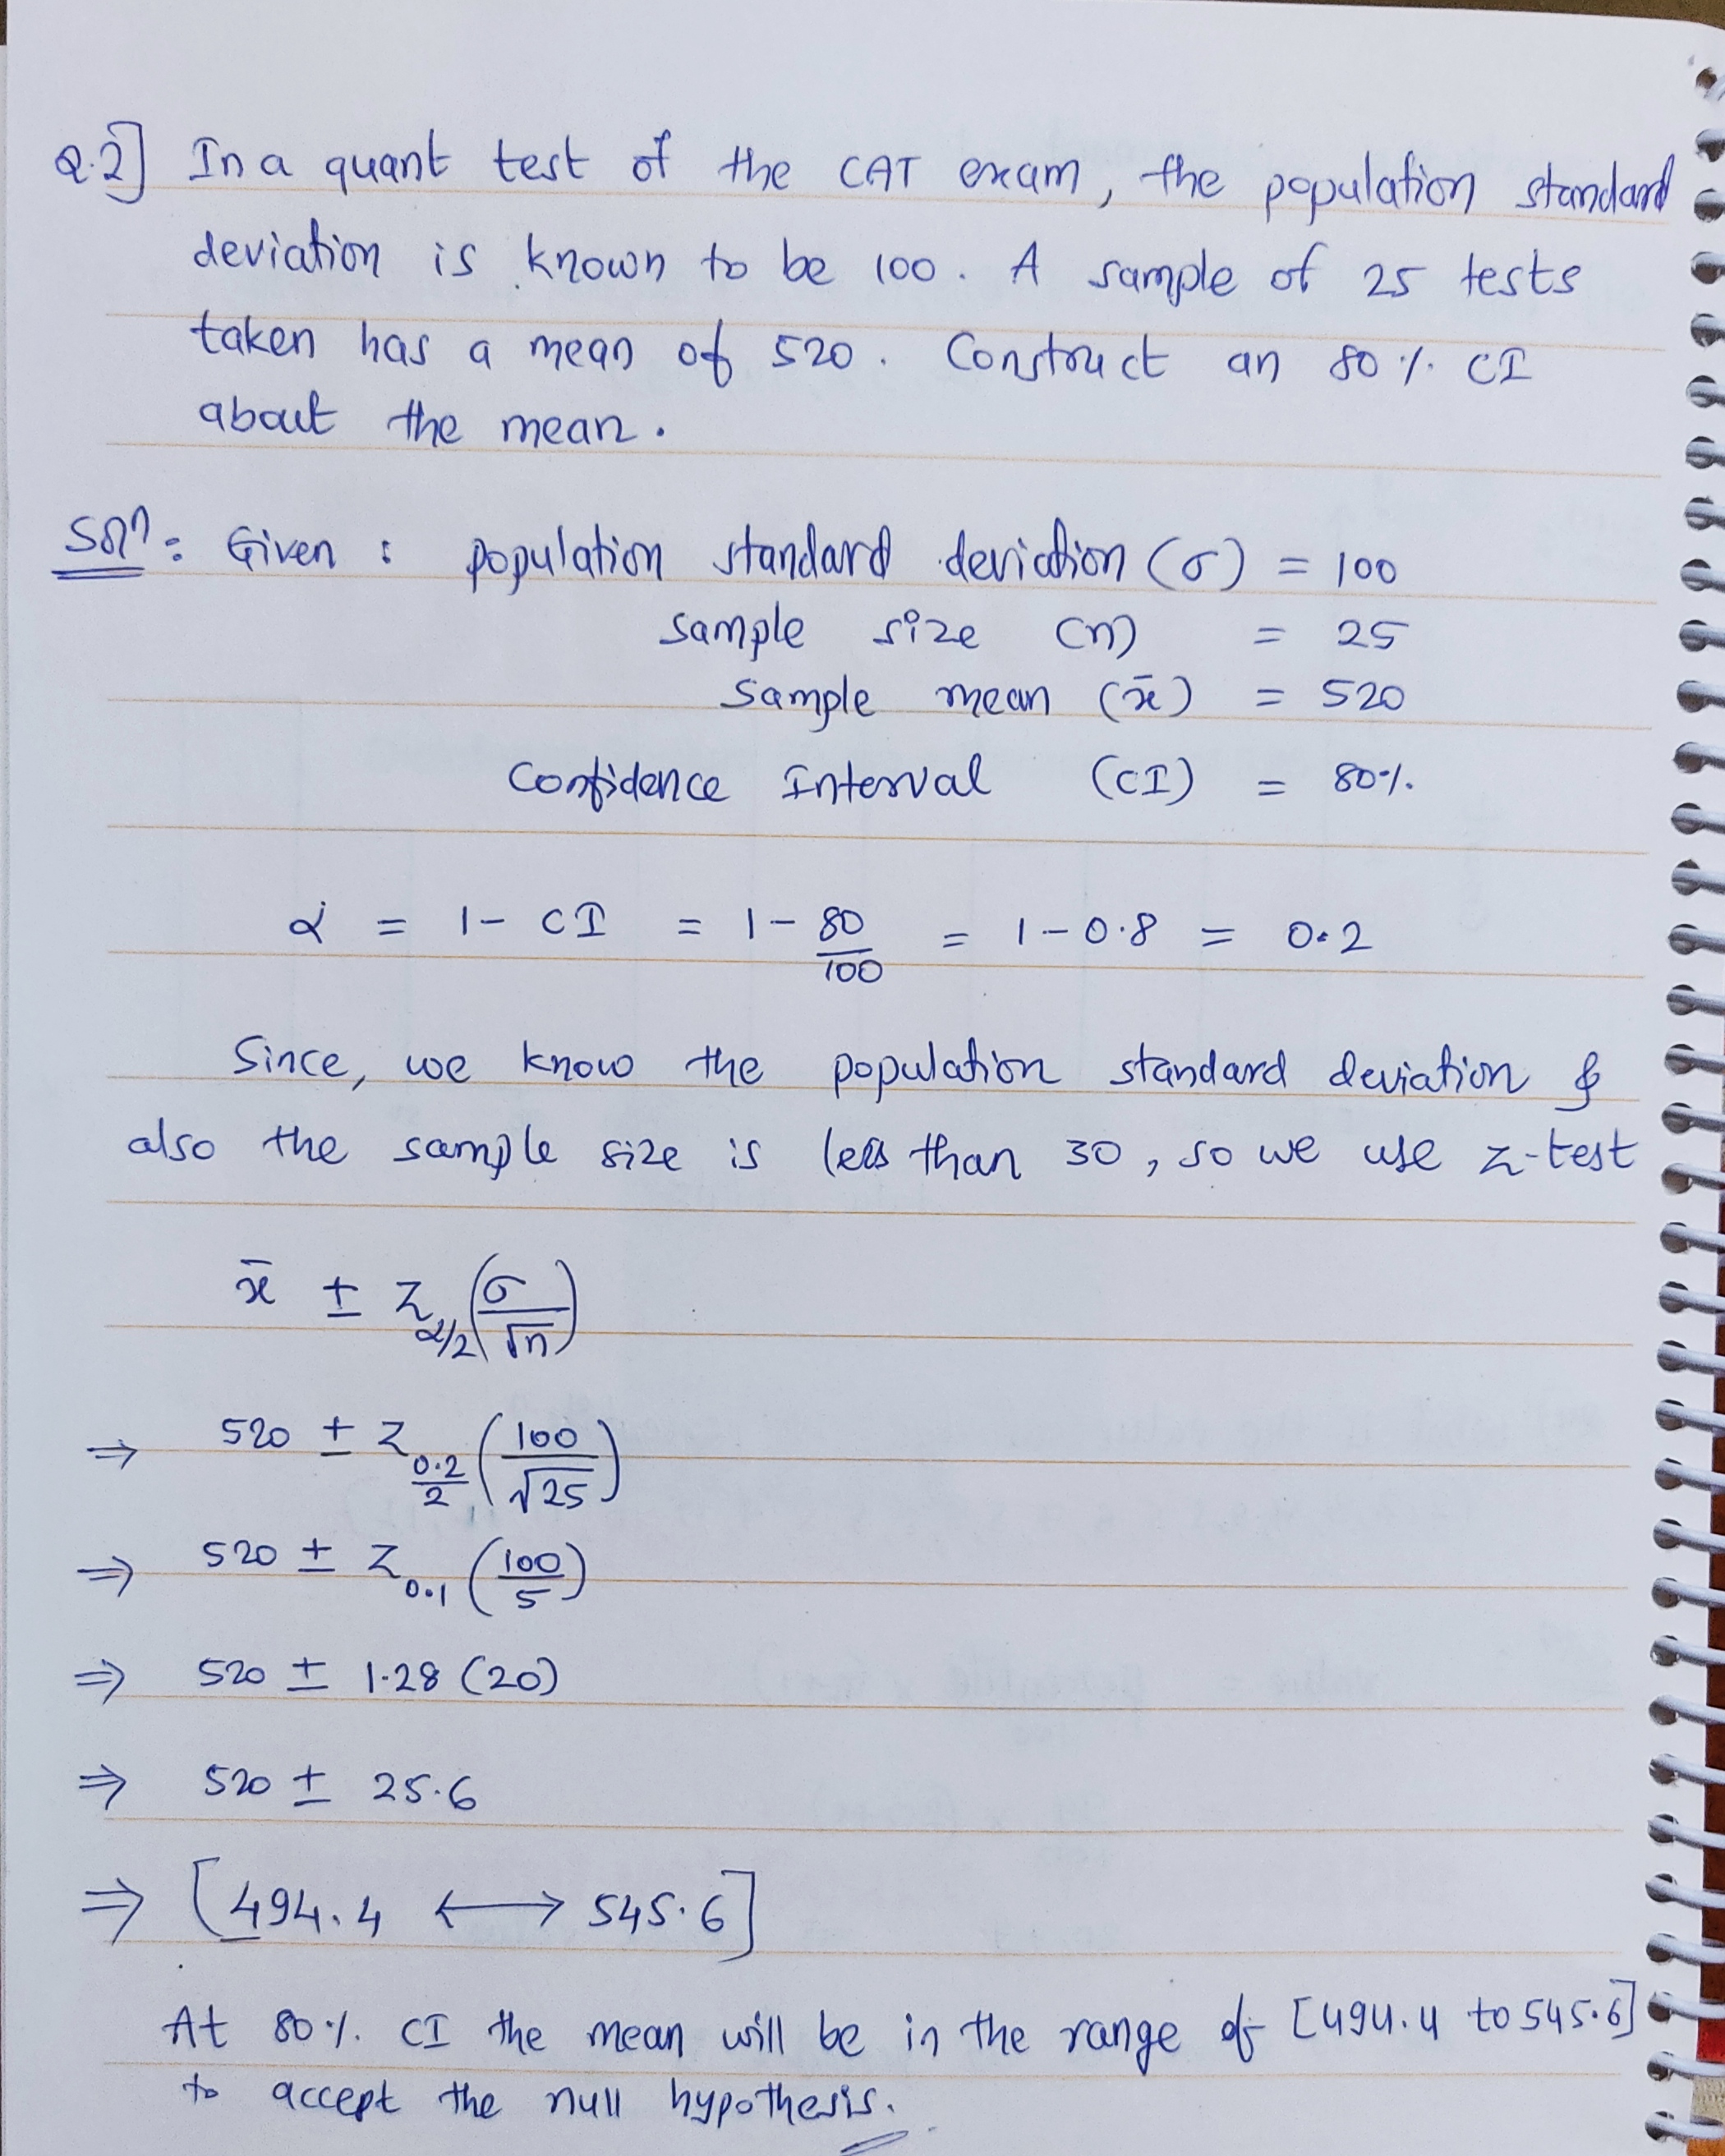 Q.2] In a quant test of the CAT exam, the population standard
deviation is known to be 100. A sample of 25 tests
taken has a mean of 520. Construct an 80% CI
about the mean.
Solⁿ: Given : population standard deviation (σ) = 100
sample size (n) = 25
sample mean (x̄) = 520
Confidence Interval (CI) = 80%
α = 1 - CI = 1 - 80/100 = 1 - 0.8 = 0.2
Since, we know the population standard deviation &
also the sample size is less than 30, so we use z-test
x̄ ± Z_α/2 (σ/√n)
⇒ 520 ± Z_0.2/2 (100/√25)
⇒ 520 ± Z_0.1 (100/5)
⇒ 520 ± 1.28 (20)
⇒ 520 ± 25.6
⇒ [494.4 ⟷ 545.6]
At 80% CI the mean will be in the range of [494.4 to 545.6]
to accept the null hypothesis.